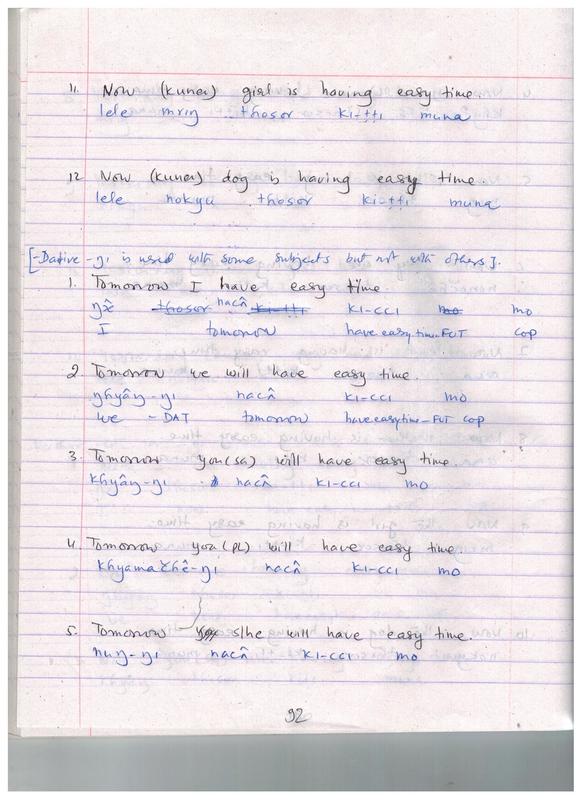 11. Now (kuner) girl is having easy time.
lele mrıŋ thosor kı-ttı muna
12 Now (kuner) dog is having easy time.
lele nokyu thosor kı-ttı muna
[-Dative -ŋı is used with some subjects but not with others].
1. Tomorrow I have easy time
ŋx̂ thosor nacâ kı-ttı kı-ccı mo mo
I tomorrow have easy time-FUT COP
2. Tomorrow we will have easy time.
ŋhyâŋ-ŋı nacâ kı-ccı mo
we - DAT tomorrow have easy time-FUT COP
3. Tomorrow you(SG) will have easy time.
khyâŋ-ŋı nacâ kı-ccı mo
4. Tomorrow you(PL) will have easy time.
khyama chê-ŋı nacâ kı-ccı mo
5. Tomorrow s/he will have easy time.
huŋ-ŋı nacâ kı-ccı mo
92